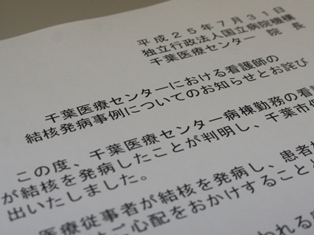 平成25年7月31日
独立行政法人国立病院機構
千葉医療センター 院長
千葉医療センターにおける看護師の
結核発病事例についてのお知らせとお詫び
この度、千葉医療センター病棟勤務の看
が結核を発病したことが判明し、千葉市
出いたしました。
医療従事者が結核を発病し、患者
ご心配をおかけすること
われる